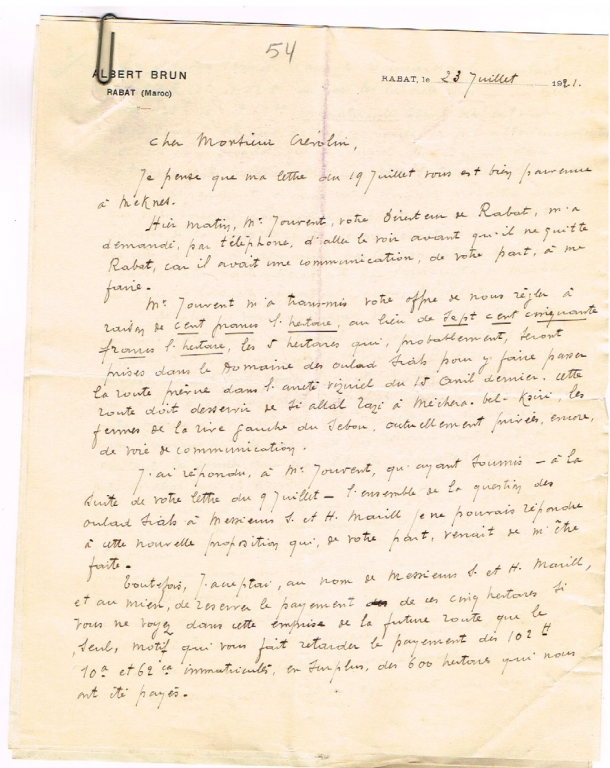 54
ALBERT BRUN
RABAT (Maroc)
RABAT, le 23 Juillet 1921.
Cher Monsieur Crévolin,
Je pense que ma lettre du 19 Juillet vous est bien parvenue
à Meknès.
Hier matin, Mr. Jouvent, votre Directeur de Rabat, m'a
demandé, par téléphone, d'aller le voir avant qu'il ne quitte
Rabat, car il avait une communication, de votre part, à me
faire.
Mr Jouvent m'a transmis votre offre de nous régler à
raison de cent francs l'hectare, au lieu de sept cent cinquante
francs l'hectare, les 5 hectares qui, probablement, seront
prises dans le Domaine des oulad Ziab pour y faire passer
la route prévue dans l'arrêté viziriel du 15 avril dernier. Cette
route doit desservir de Si allal Tazi à Mechera-bel-Ksiri, les
fermes de la rive gauche du Sebou, actuellement privées, encore,
de voie de communication.
J'ai répondu, à Mr Jouvent, qu'ayant soumis – à la
suite de votre lettre du 9 Juillet – l'ensemble de la question des
oulad Ziab à Messieurs S. et H. Marill je ne pourrais répondre
à cette nouvelle proposition qui, de votre part, venait de m'être
faite.
Toutefois, j'acceptai, au nom de Messieurs S. et H. Marill,
et au mien, de réserver le payement de ces cinq hectares si
vous ne voyez dans cette emprise de la future route que le
seul, motif qui vous fait retarder le payement des 102 H
10a et 62 ca immatriculés, en surplus, des 600 hectares qui nous
ont été payés.